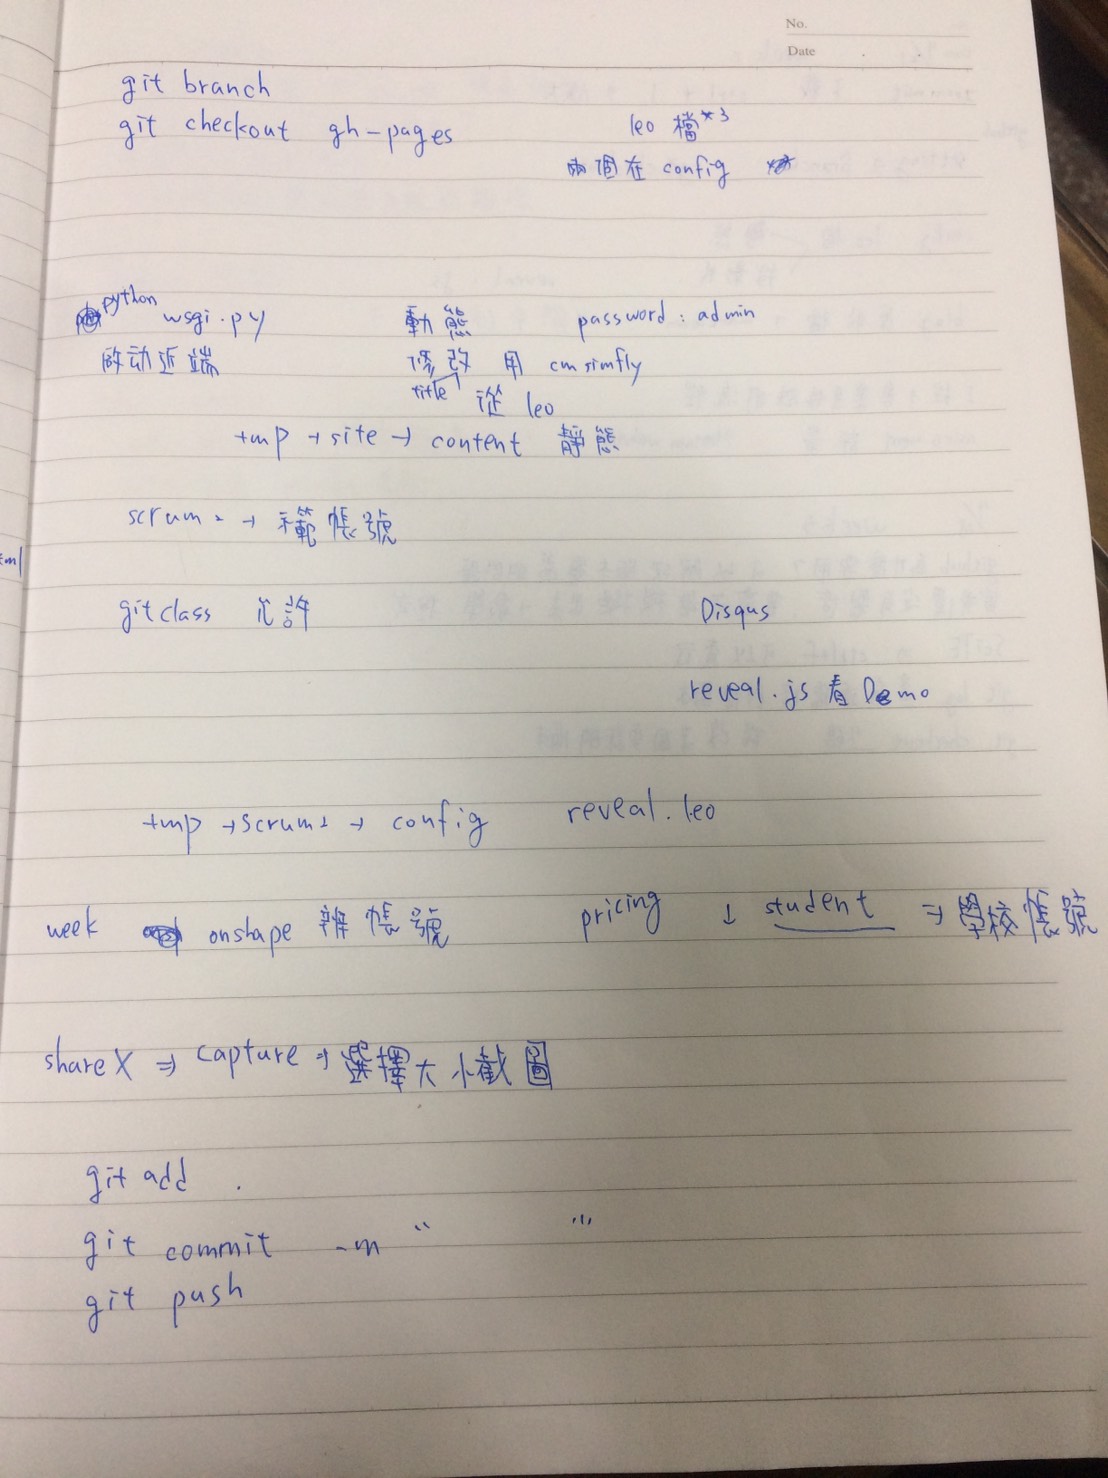 No.
Date
git branch
git checkout gh-pages
leo 檔*3
兩個在 config
python wsgi.py
啟动近端
動態
password : admin
修改 用 cmsimfly
title
從 leo
tmp → site → content 靜態
scrum2 → 示範帳號
gitclass 允許
Disqus
reveal.js 看 Demo
tmp → scrum2 → config
reveal.leo
week onshape 辦帳號
pricing ↓ student ⇒ 學校帳號
shareX ⇒ capture ⇒ 選擇大小截圖
git add .
git commit -m " "
git push